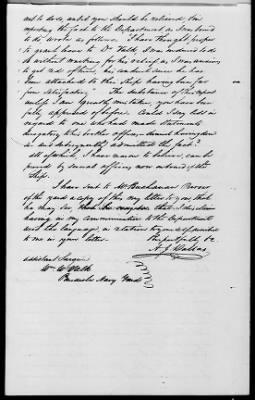 not to do so, until you should be relieved, I on
reporting the fact to the Department as I was bound
to do wrote as follows. "I have thought proper
to grant leave to Dr Valk, I was induced to do
so without waiting for his relief as I was anxious
to get rid of him; his conduct since he has
been attached to the Ship having been far
from satisfactory." The substance of this report
unless I am greatly mistaken, you have been
fully apprised of before. Could I say less in
regard to one who had made statements
derogatory to his brother officers,
and subsequently admitted the fact?
all of which, I have reason to believe, can be
proved by several officers now on board of this
Ship.
I have sent to Mr Buchanan Purser
of the yard a copy of this my letter to you, that
he may see that
having in my communication to the Department
used the language in relation to you as presented
to me in your letter.
Respectfully &c
A. J. Dallas
Assistant Surgeon
Wm W Valk
Pensacola Navy Yard